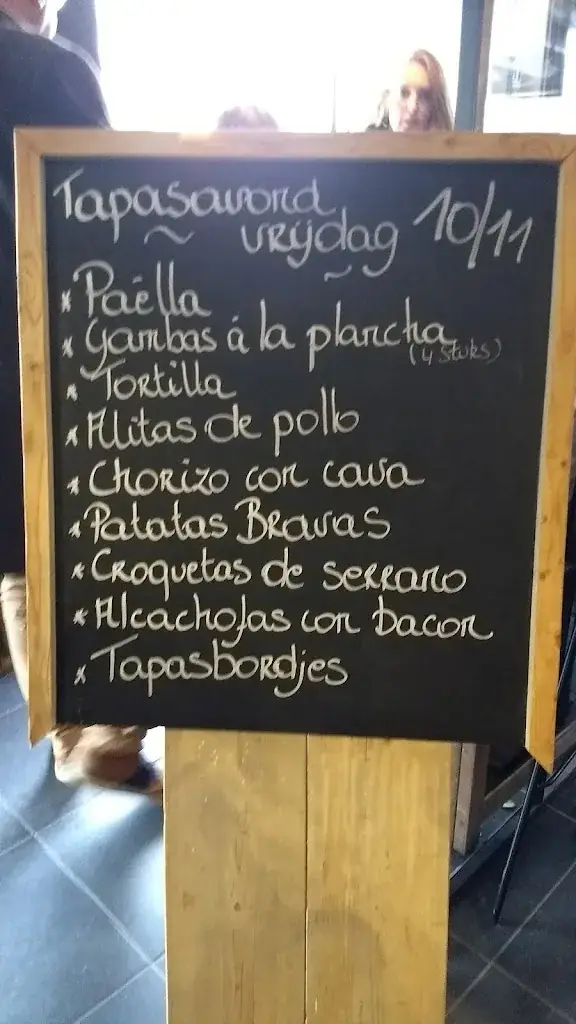 Tapasavond
vrijdag 10/11
* Paëlla
* Gambas á la plancha
(4 stuks)
* Tortilla
* Alitas de pollo
* Chorizo con cava
* Patatas Bravas
* Croquetas de serrano
* Alcachofas con bacon
* Tapasbordjes